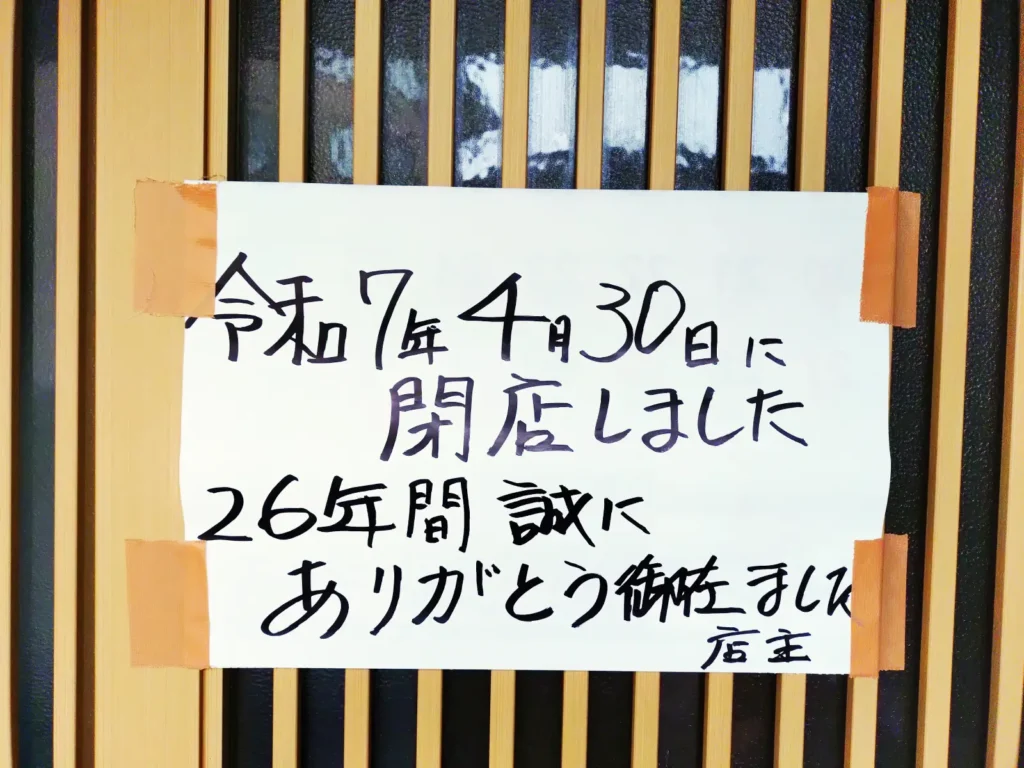 令和7年4月30日に
閉店しました
26年間 誠に
ありがとう御座ました
店主